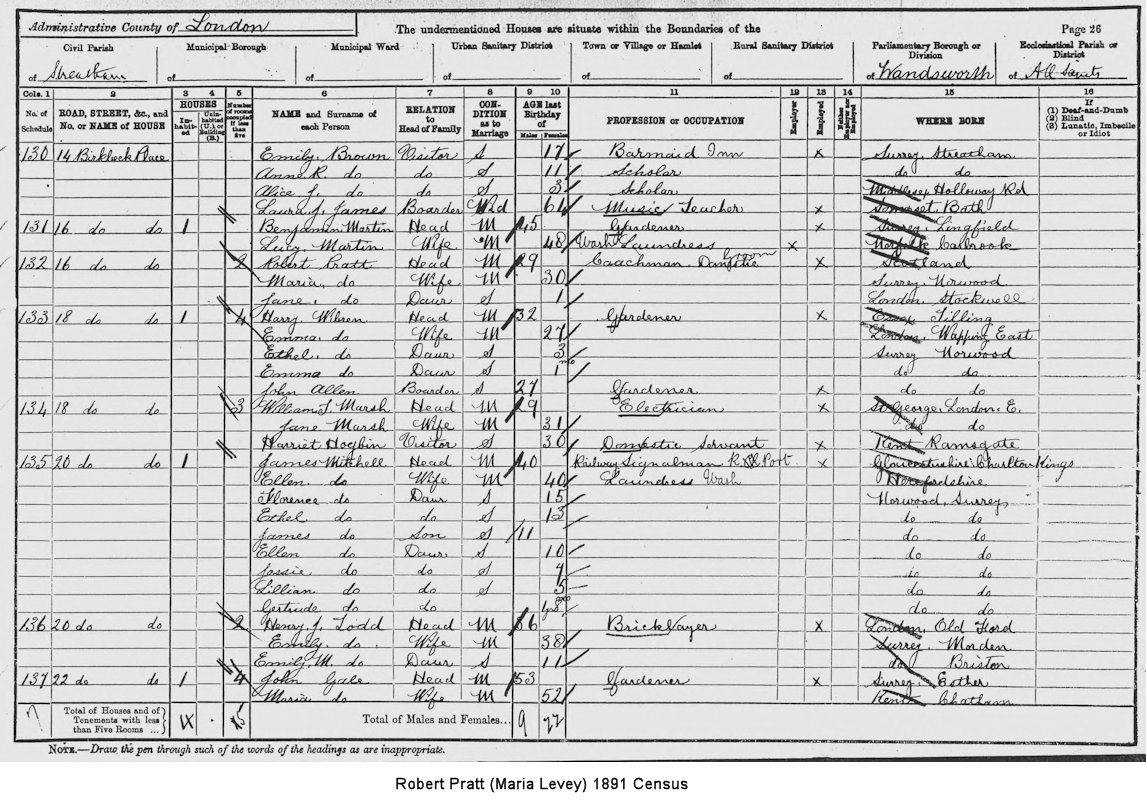 Administrative County of London
The undermentioned Houses are situate within the Boundaries of the
Page 26
Civil Parish
Municipal Borough
Municipal Ward
Urban Sanitary District
Town or Village or Hamlet
Rural Sanitary District
Parliamentary Borough or Division
Ecclesiastical Parish or District
of Streatham of of of of of of Wandsworth of All Saints
Cols. 1 2 3 4 5 6 7 8 9 10 11 12 13 14 15 16
No. of Schedule
ROAD, STREET, &c., and No. or NAME of HOUSE
HOUSES
In-habit-ed
Unin-habited (U.) or Building (B.)
Number of rooms occupied if less than five
NAME and Surname of each Person
RELATION to Head of Family
CON-DITION as to Marriage
AGE last Birthday of
Males Females
PROFESSION or OCCUPATION
Employer
Employed
Neither Employer nor Employed
WHERE BORN
If
(1) Deaf-and-Dumb
(2) Blind
(3) Lunatic, Imbecile or Idiot
130 14 Birkbeck Place Emily Brown Visitor S 17 Barmaid Inn x Surrey, Streatham
Anne R. do do S 11 Scholar do do
Alice J. do do S 3 Scholar Middlesex Holloway Rd
Laura J. James Boarder Wid 64 Music Teacher x Somerset Bath
131 16 do do 1 Benjamin Martin Head M 45 Gardener x Surrey, Lingfield
Lucy Martin Wife M 48 Wash Laundress x Norfolk
132 16 do do 2 Robert Pratt Head M 29 Coachman Domestic groom x Scotland
Maria do Wife M 30 Surrey, Norwood
Jane do Daur S 1 London Stockwell
133 18 do do 1 4 Harry Head M 32 Gardener x Essex Tilling
Emma do Wife M 27 London, Wapping East
Ethel do Daur S 3 Surrey Norwood
Emma do Daur S 1 mo do do
John Allen Boarder S 27 Gardener x do do
134 18 do do 3 William J. Marsh Head M 29 Electrician x St George, London. E.
Jane Marsh Wife M 31 do do
Harriet Hogbin Visitor S 30 Domestic Servant x Kent Ramsgate
135 20 do do 1 James Mitchell Head M 40 Railway Signalman x Gloucestershire Charlton Kings
Ellen do Wife M 40 Laundress Wash Herefordshire
Florence do Daur S 15 Norwood, Surrey
Ethel do do S 13 do do
James do Son S 11 do do
Ellen do Daur S 10 do do
Jessie do do S 7 do do
Lillian do do S 5 do do
Gertrude do do do do
136 20 do do 2 Henry J. Todd Head M 36 Bricklayer x London, Old Ford
Emily do Wife M 38 Surrey, Morden
Emily M. do Daur S 11 do
137 22 do do 1 4 John Gale Head M 53 Gardener x Surrey, Esther
Maria do Wife M 52 Kent Chatham
7 Total of Houses and of Tenements with less than Five Rooms ... 4 5 Total of Males and Females... 9 22
NOTE.—Draw the pen through such of the words of the headings as are inappropriate.
Robert Pratt (Maria Levey) 1891 Census